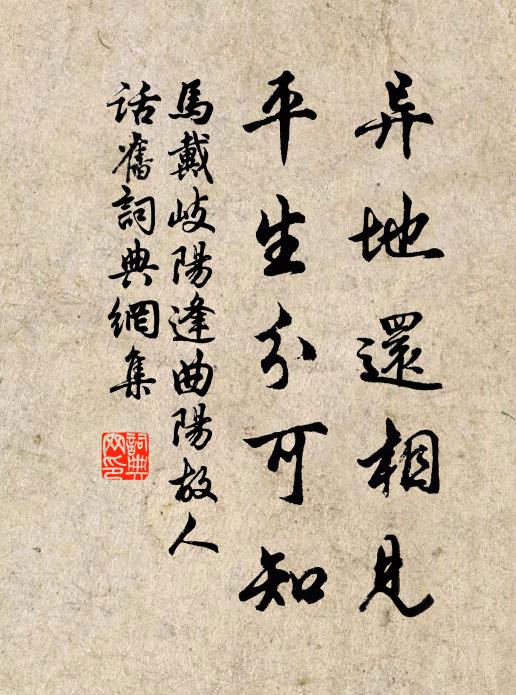 异地還相見
平生分可知
馬戴岐陽逢曲陽故人
話舊詞典網集
詞典
网印